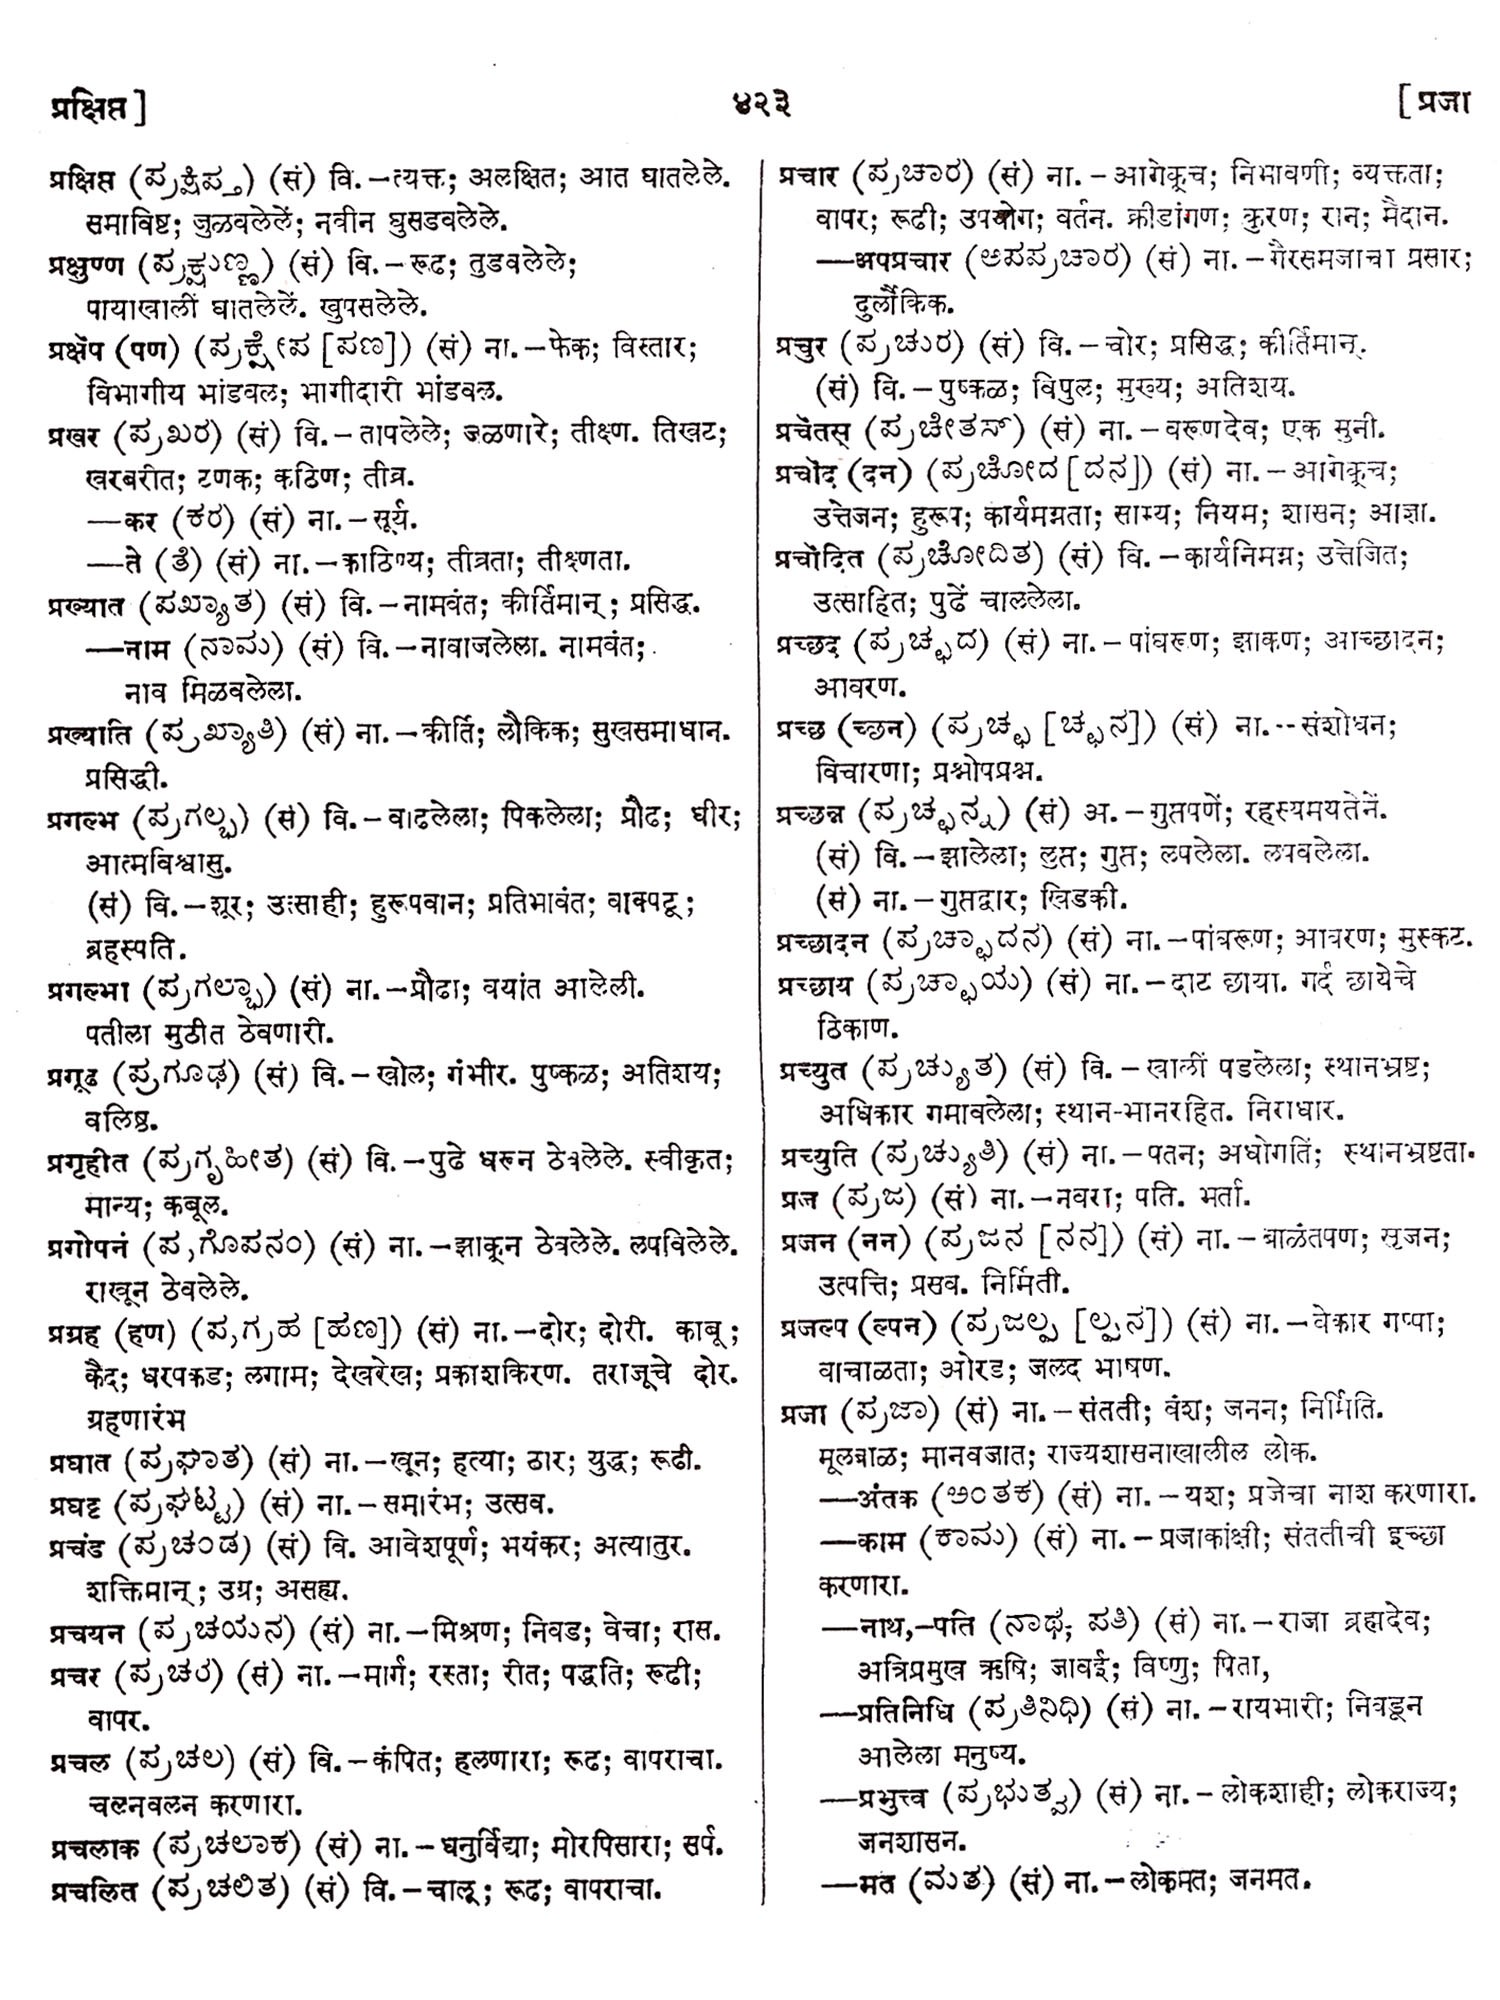 प्रक्षिप्त ]
४२३
[ प्रजा
प्रक्षिप्त (ಪ್ರಕ್ಷಿಪ್ತ) (सं) वि.–त्यक्त; अलक्षित; आत घातलेले.
समाविष्ट; जुळवलेलें; नवीन घुसडवलेले.
प्रक्षुण्ण (ಪ್ರಕ್ಷುಣ್ಣ) (सं) वि.–रूढ; तुडवलेले;
पायाखालीं घातलेलें. खुपसलेले.
प्रक्षॆप (पण) (ಪ್ರಕ್ಷೇಪ [ಪಣ]) (सं) ना.–फेक; विस्तार;
विभागीय भांडवल; भागीदारी भांडवल.
प्रखर (ಪ್ರಖರ) (सं) वि.–तापलेले; जळणारे; तीक्ष्ण. तिखट;
खरबरीत; टणक; कठिण; तीव्र.
—कर (ಕರ) (सं) ना.–सूर्य.
—ते (ತೆ) (सं) ना.–काठिण्य; तीव्रता; तीक्ष्णता.
प्रख्यात (ಪಖ್ಯಾತ) (सं) वि.–नामवंत; कीर्तिमान्; प्रसिद्ध.
—नाम (ನಾಮ) (सं) वि.–नावाजलेला. नामवंत;
नाव मिळवलेला.
प्रख्याति (ಪ್ರಖ್ಯಾತಿ) (सं) ना.–कीर्ति; लौकिक; सुखसमाधान.
प्रसिद्धी.
प्रगल्भ (ಪ್ರಗಲ್ಭ) (सं) वि.–वाढलेला; पिकलेला; प्रौढ; धीर;
आत्मविश्वासु.
(सं) वि.–शूर; उत्साही; हुरूपवान; प्रतिभावंत; वाक्पटू;
ब्रहस्पति.
प्रगल्भा (ಪ್ರಗಲ್ಭಾ) (सं) ना.–प्रौढा; वयांत आलेली.
पतीला मुठीत ठेवणारी.
प्रगूढ (ಪ್ರಗೂಢ) (सं) वि.–खोल; गंभीर. पुष्कळ; अतिशय;
वलिष्ठ.
प्रगृहीत (ಪ್ರಗೃಹೀತ) (सं) वि.–पुढे धरून ठेवलेले. स्वीकृत;
मान्य; कबूल.
प्रगोपनं (ಪ್ರಗೊಪನಂ) (सं) ना.–झाकून ठेवलेले. लपविलेले.
राखून ठेवलेले.
प्रग्रह (हण) (ಪ್ರಗ್ರಹ [ಹಣ]) (सं) ना.–दोर; दोरी. काबू;
कैद; धरपकड; लगाम; देखरेख; प्रकाशकिरण. तराजूचे दोर.
ग्रहणारंभ
प्रघात (ಪ್ರಘಾತ) (सं) ना.–खून; हत्या; ठार; युद्ध; रूढी.
प्रघट्ट (ಪ್ರಘಟ್ಟ) (सं) ना.–समारंभ; उत्सव.
प्रचंड (ಪ್ರಚಂಡ) (सं) वि. आवेशपूर्ण; भयंकर; अत्यातुर.
शक्तिमान्; उग्र; असह्य.
प्रचयन (ಪ್ರಚಯನ) (सं) ना.–मिश्रण; निवड; वेचा; रास.
प्रचर (ಪ್ರಚರ) (सं) ना.–मार्ग; रस्ता; रीत; पद्धति; रूढी;
वापर.
प्रचल (ಪ್ರಚಲ) (सं) वि.–कंपित; हलणारा; रूढ; वापराचा.
चलनवलन करणारा.
प्रचलाक (ಪ್ರಚಲಾಕ) (सं) ना.–धनुर्विद्या; मोरपिसारा; सर्प.
प्रचलित (ಪ್ರಚಲಿತ) (सं) वि.–चालू; रूढ; वापराचा.
प्रचार (ಪ್ರಚಾರ) (सं) ना.–आगेकूच; निभावणी; व्यक्तता;
वापर; रूढी; उपयोग; वर्तन. क्रीडांगण; कुरण; रान; मैदान.
—अपप्रचार (ಅಪಪ್ರಚಾರ) (सं) ना.–गैरसमजाचा प्रसार;
दुर्लौकिक.
प्रचुर (ಪ್ರಚುರ) (सं) वि.–चोर; प्रसिद्ध; कीर्तिमान्.
(सं) वि.–पुष्कळ; विपुल; मुख्य; अतिशय.
प्रचॆतस् (ಪ್ರಚೇತಸ್) (सं) ना.–वरूणदेव; एक मुनी.
प्रचॊद (दन) (ಪ್ರಚೋದ [ದನ]) (सं) ना.–आगेकूच;
उत्तेजन; हुरूप; कार्यमग्नता; साम्य; नियम; शासन; आज्ञा.
प्रचॊदित (ಪ್ರಚೋದಿತ) (सं) वि.–कार्यनिमग्न; उत्तेजित;
उत्साहित; पुढें चाललेला.
प्रच्छद (ಪ್ರಚ್ಛದ) (सं) ना.–पांघरूण; झाकण; आच्छादन;
आवरण.
प्रच्छ (च्छन) (ಪ್ರಚ್ಛ [ಚ್ಛನ]) (सं) ना.--संशोधन;
विचारणा; प्रश्नोपप्रश्न.
प्रच्छन्न (ಪ್ರಚ್ಛನ್ನ) (सं) अ.–गुप्तपणें; रहस्यमयतेनें.
(सं) वि.–झालेला; लुप्त; गुप्त; लपलेला. लपवलेला.
(सं) ना.–गुप्तद्वार; खिडकी.
प्रच्छादन (ಪ್ರಚ್ಛಾದನ) (सं) ना.–पांघरूण; आवरण; मुस्कट.
प्रच्छाय (ಪ್ರಚ್ಛಾಯ) (सं) ना.–दाट छाया. गर्द छायेचे
ठिकाण.
प्रच्युत (ಪ್ರಚ್ಯುತ) (सं) वि.–खालीं पडलेला; स्थानभ्रष्ट;
अधिकार गमावलेला; स्थान-भानरहित. निराधार.
प्रच्युति (ಪ್ರಚ್ಯುತಿ) (सं) ना.–पतन; अधोगति; स्थानभ्रष्टता.
प्रज (ಪ್ರಜ) (सं) ना.–नवरा; पति. भर्ता.
प्रजन (नन) (ಪ್ರಜನ [ನನ]) (सं) ना.–बाळंतपण; सृजन;
उत्पत्ति; प्रसव. निर्मिती.
प्रजल्प (ल्पन) (ಪ್ರಜಲ್ಪ [ಲ್ಪನ]) (सं) ना.–वेकार गप्पा;
वाचाळता; ओरड; जलद भाषण.
प्रजा (ಪ್ರಜಾ) (सं) ना.–संतती; वंश; जनन; निर्मिति.
मूलबाळ; मानवजात; राज्यशासनाखालील लोक.
—अंतक (ಅಂತಕ) (सं) ना.–यश; प्रजेचा नाश करणारा.
—काम (ಕಾಮ) (सं) ना.–प्रजाकांक्षी; संततीची इच्छा
करणारा.
—नाथ,–पति (ನಾಥ; ಪತಿ) (सं) ना.–राजा ब्रह्मदेव;
अत्रिप्रमुख ऋषि; जावई; विष्णु; पिता,
—प्रतिनिधि (ಪ್ರತಿನಿಧಿ) (सं) ना.–रायभारी; निवडून
आलेला मनुष्य.
—प्रभुत्त्व (ಪ್ರಭುತ್ವ) (सं) ना.–लोकशाही; लोकराज्य;
जनशासन.
—मत (ಮತ) (सं) ना.–लोकमत; जनमत.